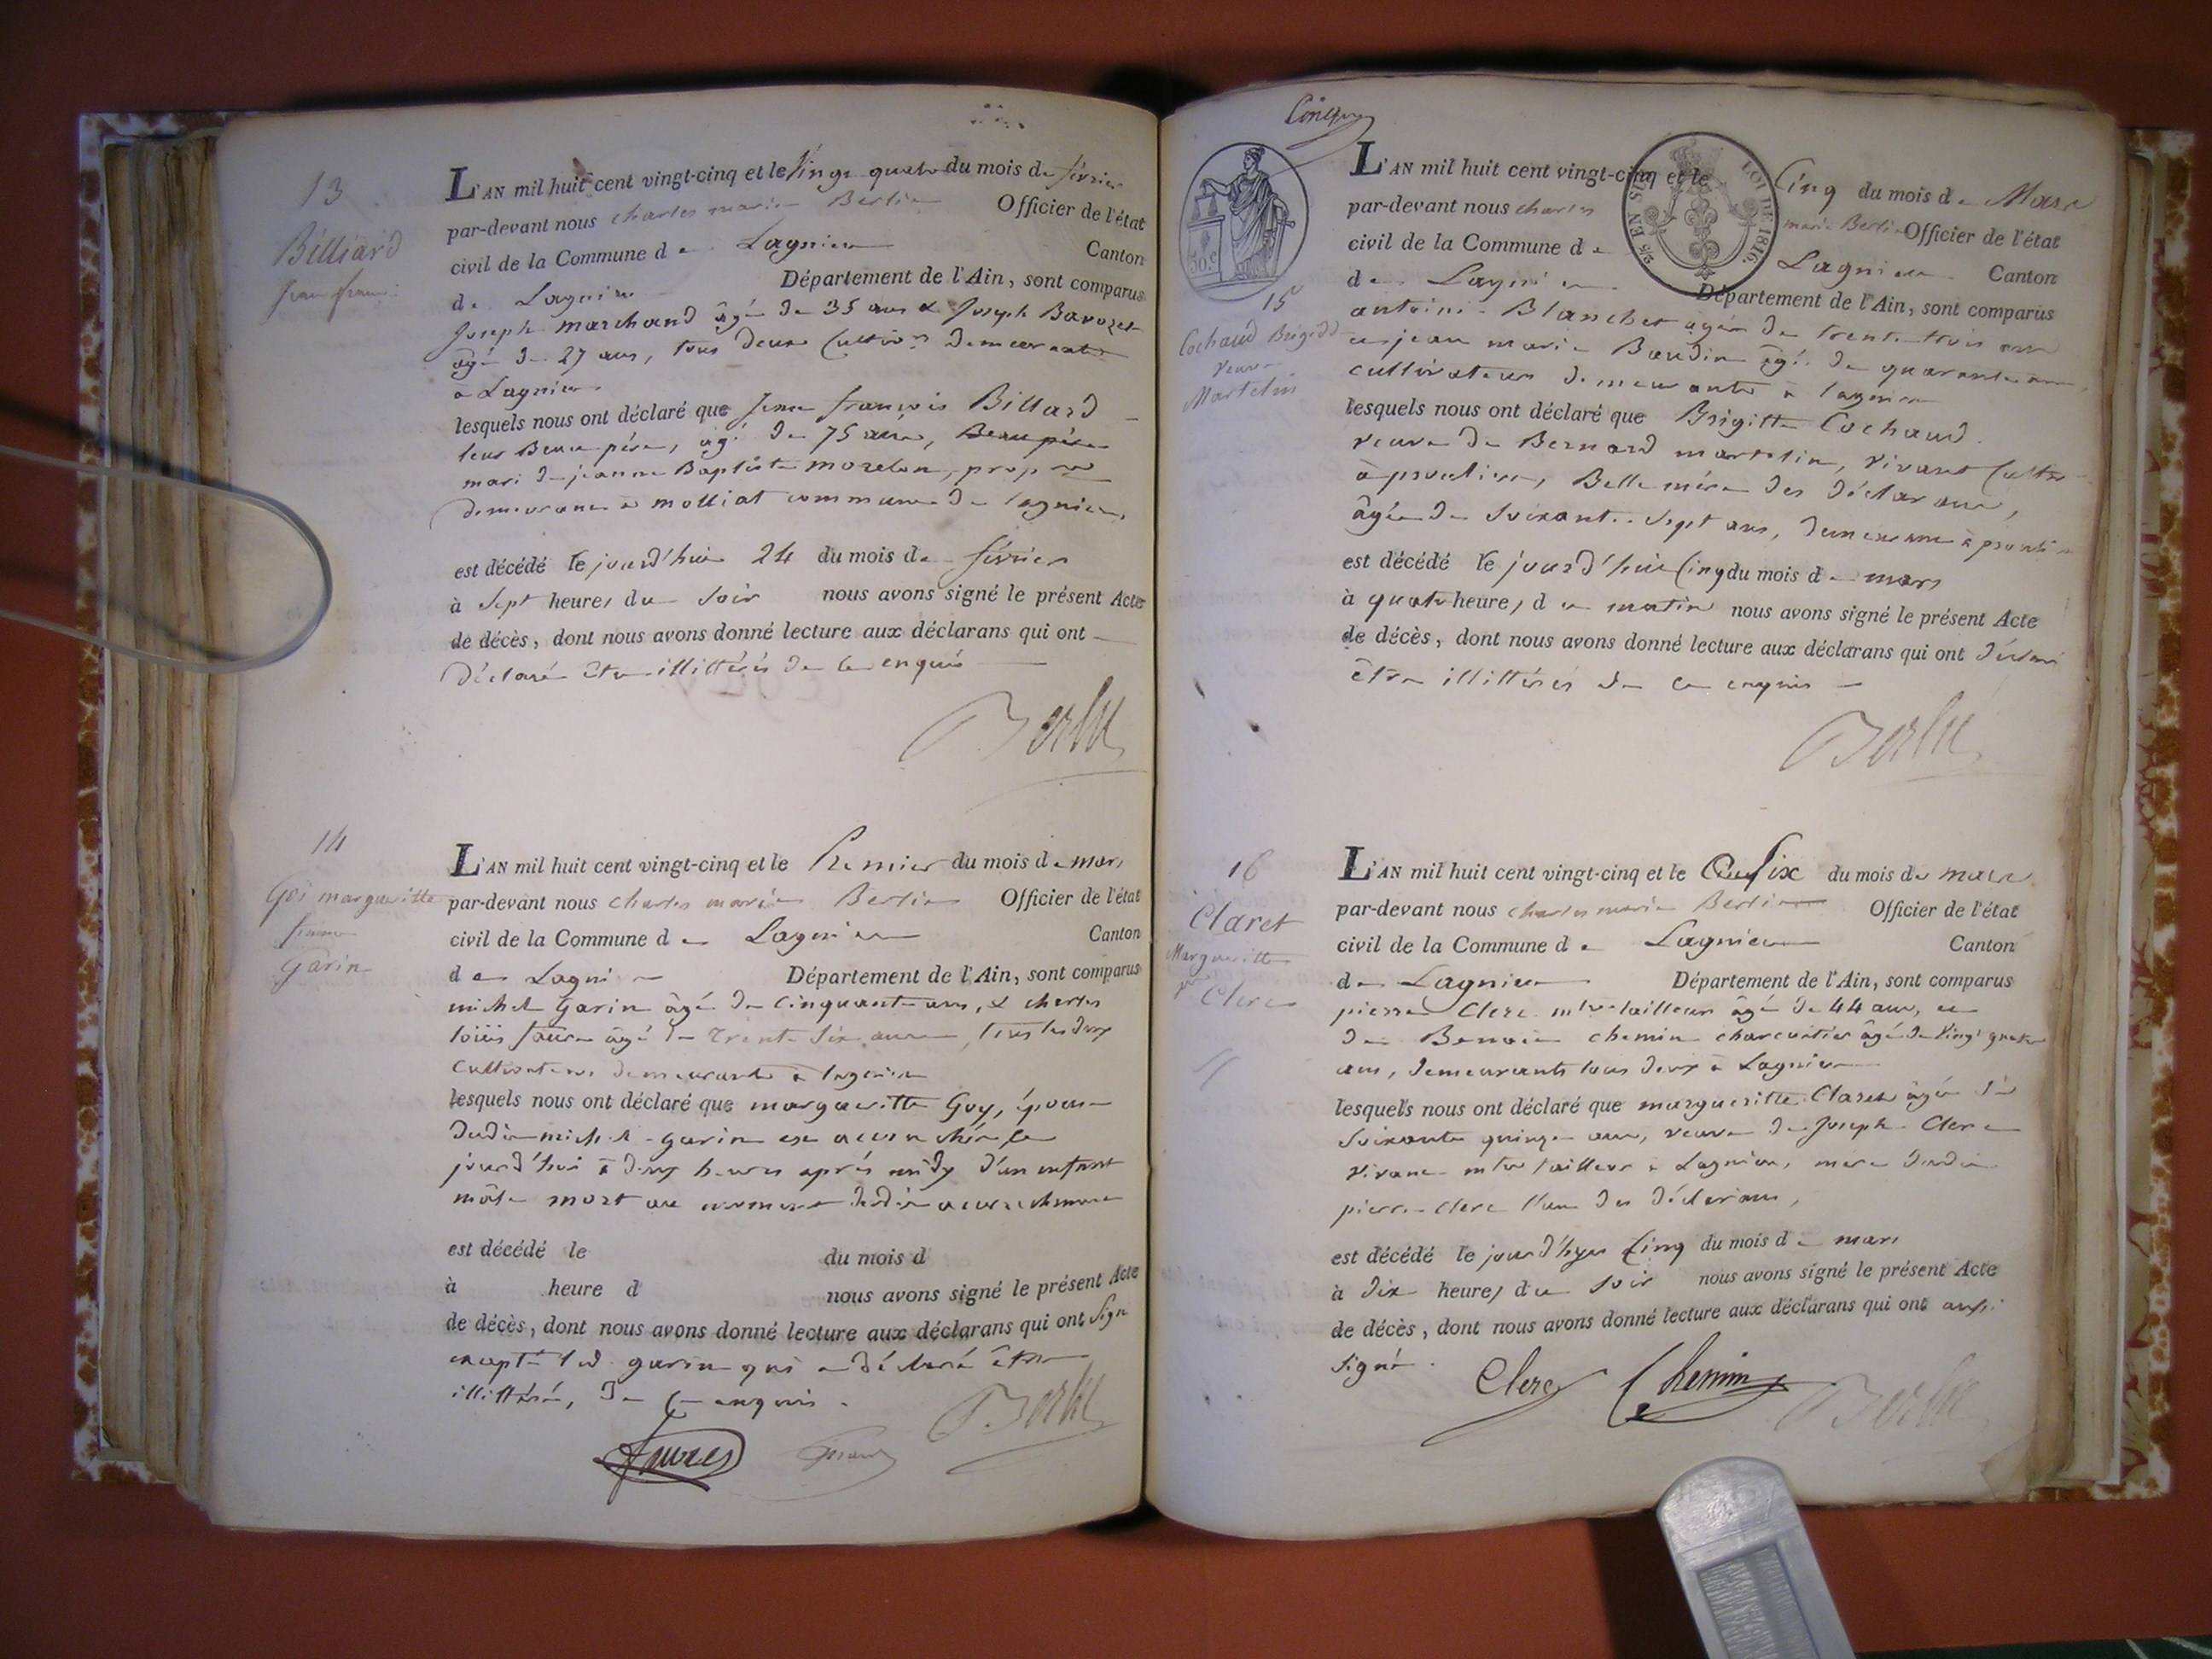 13
Billiard
jean françois
L'AN mil huit cent vingt-cinq et le Vingt quatre du mois de février
par-devant nous charles marie Berlie Officier de l'état
civil de la Commune de Lagnieu Canton
de Lagnieu Département de l'Ain, sont comparus
Joseph marchand âgé de 35 ans & Joseph Bavozet
âgé de 27 ans, tous deux Cultivrs demeurants
a Lagnieu
lesquels nous ont déclaré que jean françois Billard
leur Beau père, agé de 75 ans, Beau père
mari de jeanne Baptiste morelon, prop re
demeurant a molliat commune de lagnieu,
est décédé le jourd'hui 24 du mois de février
à Sept heures du Soir nous avons signé le présent Acte
de décès, dont nous avons donné lecture aux déclarans qui ont
Déclaré être illittérés de ce enquis
Berlie
14
Goi margueritte
femme
Garin
L'AN mil huit cent vingt-cinq et le Premier du mois de mars
par-devant nous Charles marie Berlie Officier de l'état
civil de la Commune de Lagnieu Canton
de Lagnieu Département de l'Ain, sont comparus
michel Garin âgé de Cinquante ans, & charles
loüis faure âgé de Trente Six ans, tous les deux
Cultivateurs demeurants à lagnieu
lesquels nous ont déclaré que margueritte Goy, épouse
dudit michel garin est accouchée ce
jourd'hui à deux heures après midy d'un enfant
mâle mort au moment dudit accouchement
est décédé le du mois d
à heure d nous avons signé le présent Acte
de décès, dont nous avons donné lecture aux déclarans qui ont Signé
excepté led. garin qui a déclaré être
illittéré, De Ce enquis.
faures Berlie
Cinq
30.c
25 EN SUS LOI DE 1816.
15
Cochaud Brigitte
veuve
Martelin
L'AN mil huit cent vingt-cinq et le Cinq du mois de Mars
par-devant nous charles marie Berlie Officier de l'état
civil de la Commune de Lagnieu Canton
de Lagnieu Département de l'Ain, sont comparus
antoine Blanchet âgé de trente trois ans
et jean marie Baudin âgé de quarante ans,
cultivateurs demeurants à lagnieu
lesquels nous ont déclaré que Brigitte Cochaud
veuve de Bernard martelin, vivant Cultr
à proulieu, Belle mére des déclarans,
âgée de Soixante Sept ans, demeurant à proulieu
est décédé le jourd'hui Cinq du mois de mars
à quatre heures du matin nous avons signé le présent Acte
de décès, dont nous avons donné lecture aux déclarans qui ont déclaré
être illittérés de ce enquis
Berlie
16
Claret
Margueritte
ve
Clerc
L'AN mil huit cent vingt-cinq et le Six du mois de mars
par-devant nous charles marie Berlie Officier de l'état
civil de la Commune de Lagnieu Canton
de Lagnieu Département de l'Ain, sont comparus
pierre Clerc mtre tailleur âgé de 44 ans, et
de Benoit chemin charcutier âgé de Vingt quatre
ans, demeurants tous deux à Lagnieu
lesquels nous ont déclaré que margueritte Claret âgée de
Soixante quinze ans, veuve de Joseph Clerc
vivant mtre tailleur à Lagnieu, mere dudit
pierre Clerc l'un des déclarans,
est décédé le jourd'hyer Cinq du mois de mars
à Dix heures du Soir nous avons signé le présent Acte
de décès, dont nous avons donné lecture aux déclarans qui ont aussi
Signé.
Clerc Chemin Berlie